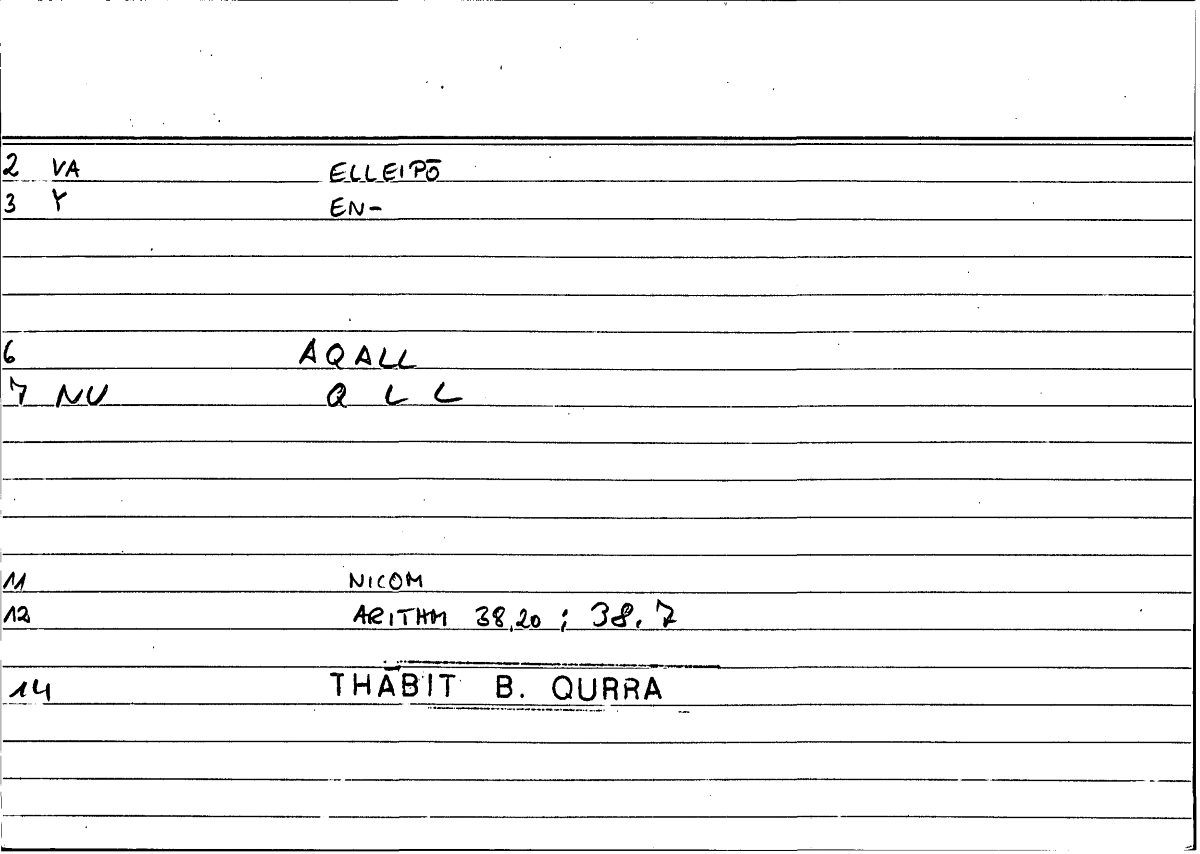 2 VA ELLEIPŌ
3 Y EN-
6 AQALL
7 NU Q L L
11 NICOM
12 ARITHM 38,20 ; 38.7
14 THĀBIT B. QURRA